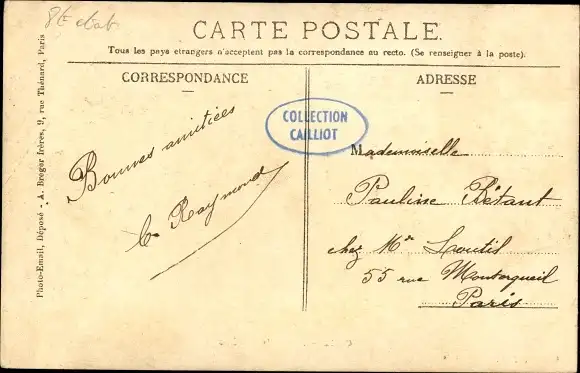 CARTE POSTALE.
Tous les pays etrangers n'acceptent pas la correspondance au recto. (Se renseigner à la poste).
CORRESPONDANCE
ADRESSE
Photo-Email, Déposé - A. Breger frères, 9, rue Thénard, Paris
COLLECTION
CAILLIOT
Bonnes amitiées
C. Raymond
Mademoiselle
Pauline Bétant
chez Mr Loutil
55 rue Montorgueil
Paris